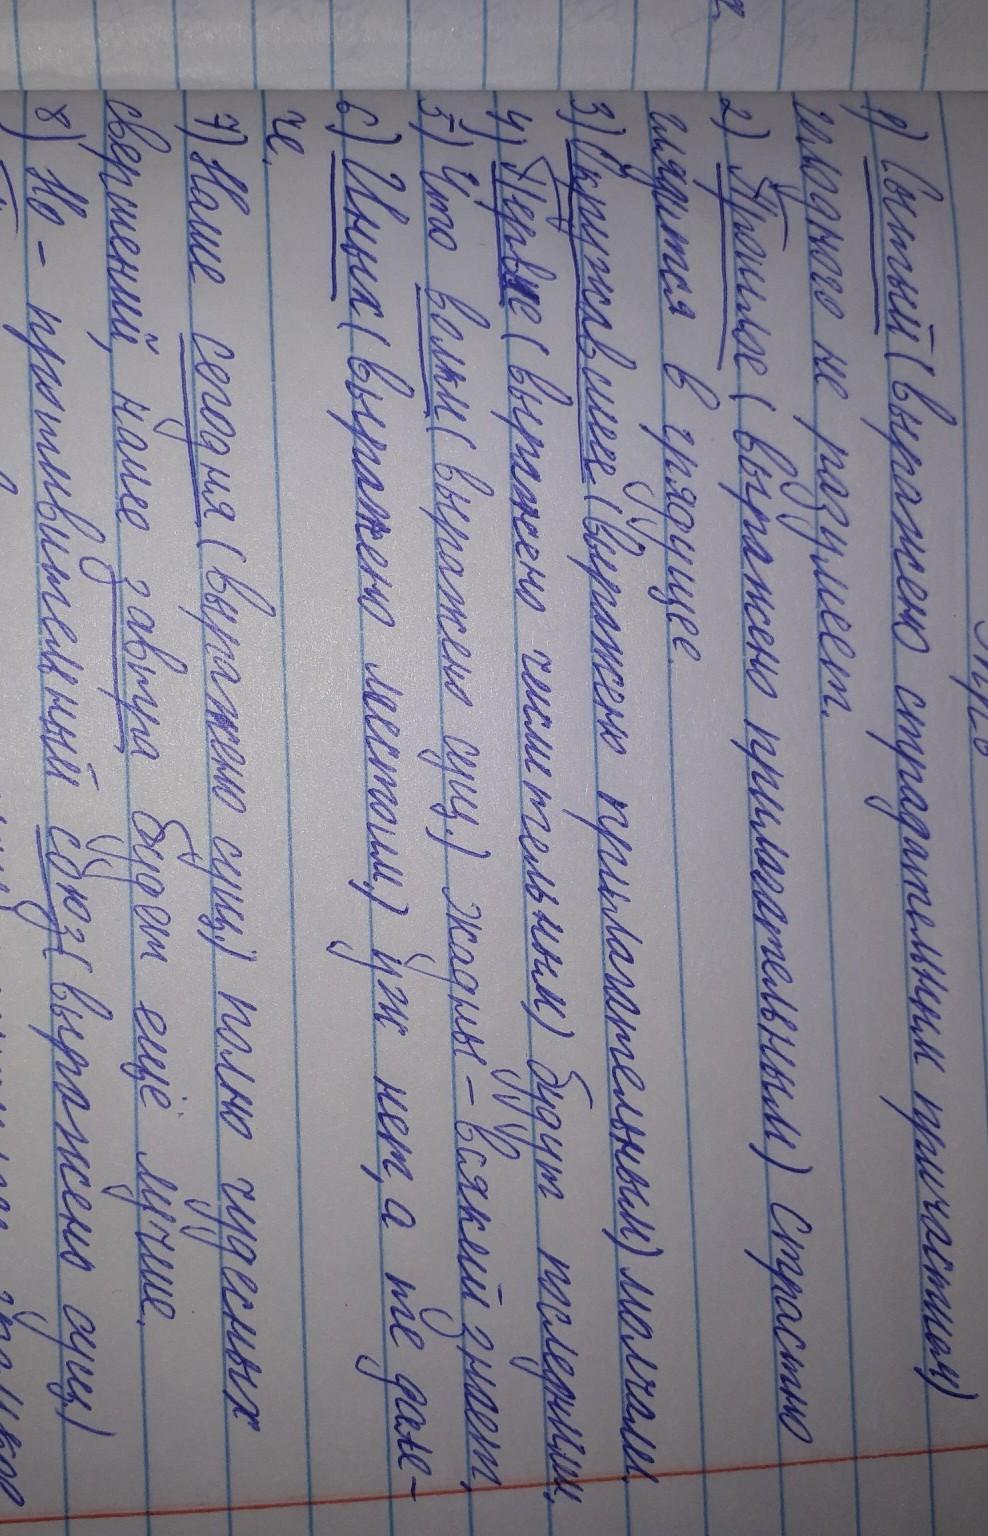 Упр
1) Сытый (выражено страдательним причастием)
голодного не разумеет.
2) Прошлое (выражено прилагательным) страстно
глядится в грядущее.
3) Окружавшее (выражено прилагательным) молчали.
4) Первые (выражено числительным) будут последними,
5) Что волки (выражено сущ.) жадны - всякий знает,
6) Иных (выражено местоим.) уж нет, а те дале-
че.
7) Наше сегодня (выражено сущ.) полно чудесных
свершений, наше завтра будет ещё лучше.
8) Но - противительный союз (выражено сущ.)